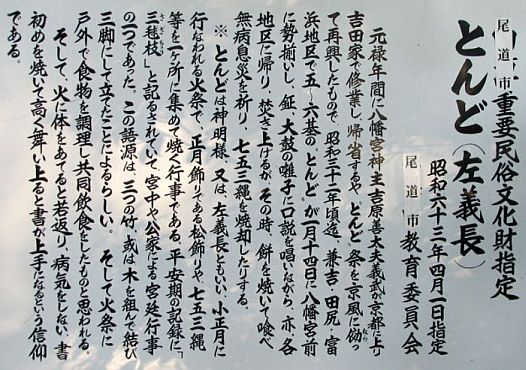 尾道市重要民俗文化財指定
とんど（左義長）
昭和六十三年四月一日指定
尾道市教育委員会
元禄年間に八幡宮神主吉原善太夫義武が京都に上り
吉田家で修業し、帰省するや とんど 祭を京風に倣っ
て再興したもので、昭和三十二年頃迄、兼吉・田尻・富
浜地区で五～六基の とんど が一月十四日に八幡宮前
に勢揃いし、鉦、太鼓の囃子に口説を唱いながら、亦、各
地区に帰り、焚き上げるが、その時、餅を焼いて喰べ
無病息災を祈り、七五三縄を焼却したりする。
※ とんどは神明様、又は、左義長ともいい、小正月に
行なわれる火祭で、正月飾りである松飾りや、七五三縄
等を一ヶ所に集めて焼く行事である。平安期の記録に「
三毬杖」と記るされていて、宮中や公家による宮廷行事
の一つであった。この語源は、三つの竹、或は、木を組んで結び
三脚にして立てたことによるらしい。そして火祭に
戸外で食物を調理し共同飲食をしたものと思われる。
そして、火に体をあてると若返り、病気をしない。書
初めを焼いて高く舞い上ると書が上手になるという信仰
である。